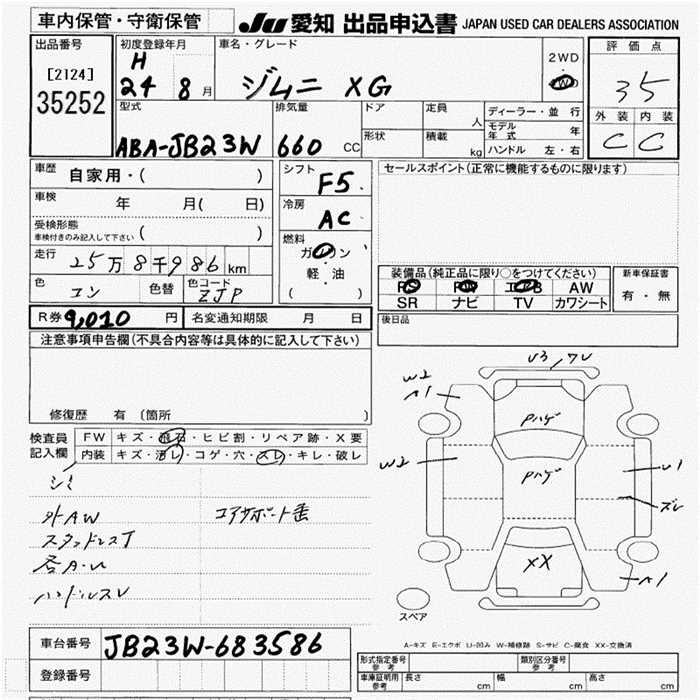 車内保管・守衛保管
JU 愛知 出品申込書 JAPAN USED CAR DEALERS ASSOCIATION
出品番号
[2124]
35252
初度登録年月
H
24 8 月
車名・グレード
ジムニ XG
2WD
4WD
評価点
35
外装 内装
C C
型式
ABA-JB23W
排気量
660 CC
ドア
形状
定員
人
積載
kg
ディーラー・並行
モデル年式 年
ハンドル 左・右
車歴 自家用・( )
車検 年 月( 日)
受検形態
車検付きのみ記入して下さい ( )
走行 25万8千986km
色 コン 色替 色コード ZJP
シフト
F5
冷房
AC
燃料
ガソリン
軽・油
( )
セールスポイント(正常に機能するものに限ります)
装備品(純正品に限り○をつけてください)
PS PW エアB AW
SR ナビ TV カワシート
新車保証書
有・無
後日品
R券 9,010 円 名変通知期限 月 日
注意事項申告欄(不具合内容等は具体的に記入して下さい)
修復歴 有 (箇所 )
検査員記入欄
FW キズ・飛石・ヒビ割・リペア跡・X要
内装 キズ・汚レ・コゲ・穴・スレ・キレ・破レ
シミ
外AW
スタッドレスT
ハンドルスレ
U3
W2
A1
Pハゲ
W2
Pハゲ
U1
ズレ
XX
A1
スペア
A-キズ E-エクボ U-凹み W-補修跡 S-サビ C-腐食 XX-交換済
車台番号 JB23W-683586
登録番号
形式指定番号 参考
類別区分番号 参考
車庫証明用 参考
長さ cm 幅 cm 高さ cm